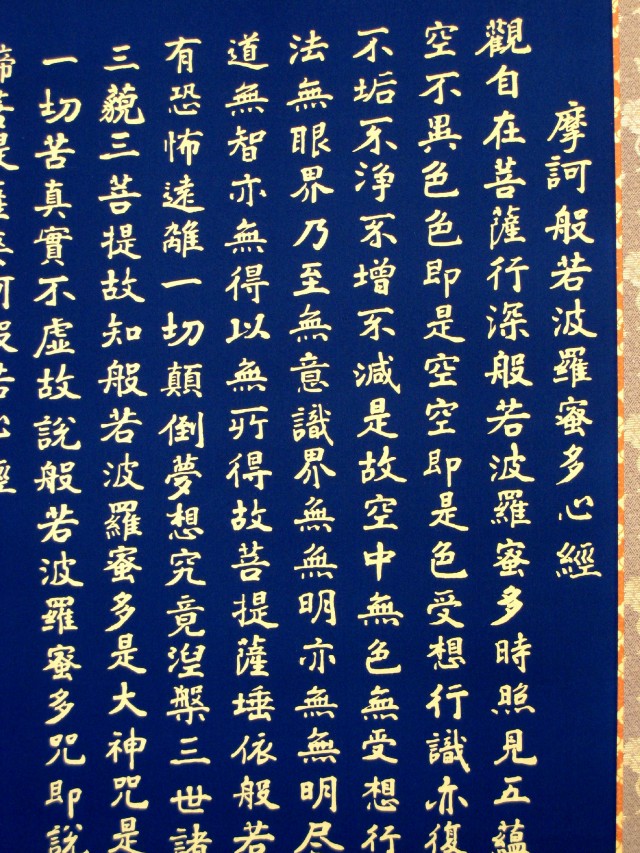 摩訶般若波羅蜜多心經
觀自在菩薩行深般若波羅蜜多時照見五蘊
空不異色色即是空空即是色受想行識亦復
不垢不淨不增不減是故空中無色無受想行
法無眼界乃至無意識界無無明亦無無明尽
道無智亦無得以無所得故菩提薩埵依般若
有恐怖遠離一切顛倒夢想究竟涅槃三世諸
三藐三菩提故知般若波羅蜜多是大神咒是
一切苦真實不虛故說般若波羅蜜多咒即說
諦菩提薩婆訶般若心經